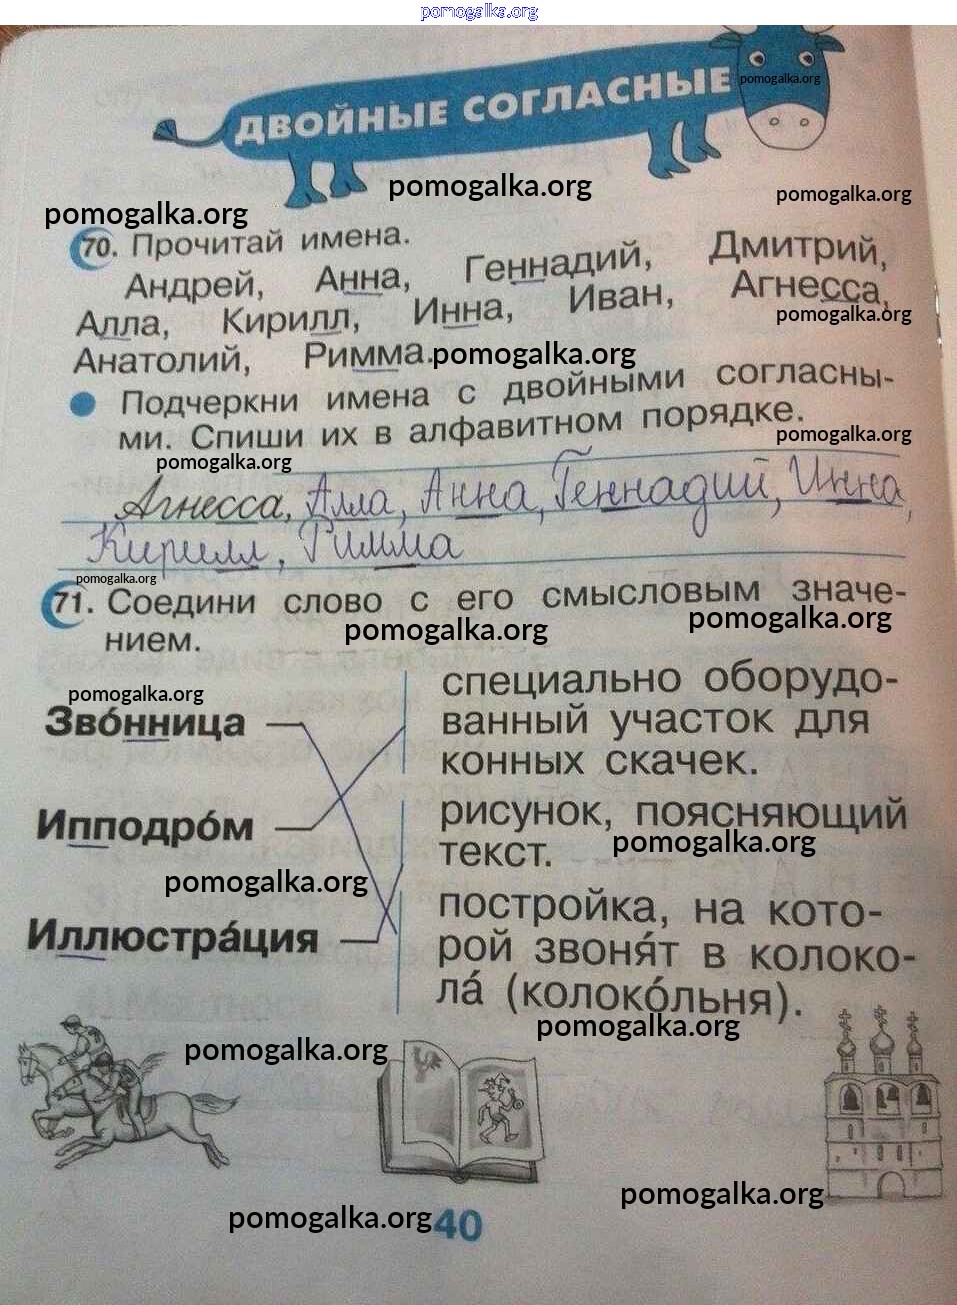 pomogalka.org
ДВОЙНЫЕ СОГЛАСНЫЕ
pomogalka.org
pomogalka.org
pomogalka.org
pomogalka.org
70. Прочитай имена.
Андрей, Анна, Геннадий, Дмитрий,
Алла, Кирилл, Инна, Иван, Агнесса,
pomogalka.org
Анатолий, Римма.
pomogalka.org
Подчеркни имена с двойными согласны-
ми. Спиши их в алфавитном порядке.
pomogalka.org
pomogalka.org
Агнесса, Алла, Анна, Геннадий, Инна,
Кирилл, Римма
pomogalka.org
71. Соедини слово с его смысловым значе-
нием.
pomogalka.org
pomogalka.org
pomogalka.org
Звóнница
специально оборудо-
ванный участок для
конных скачек.
Ипподрóм
рисунок, поясняющий
текст.
pomogalka.org
pomogalka.org
Иллюстрáция
постройка, на кото-
рой звоня́т в колоко-
лá (колокóльня).
pomogalka.org
pomogalka.org
pomogalka.org
pomogalka.org
40